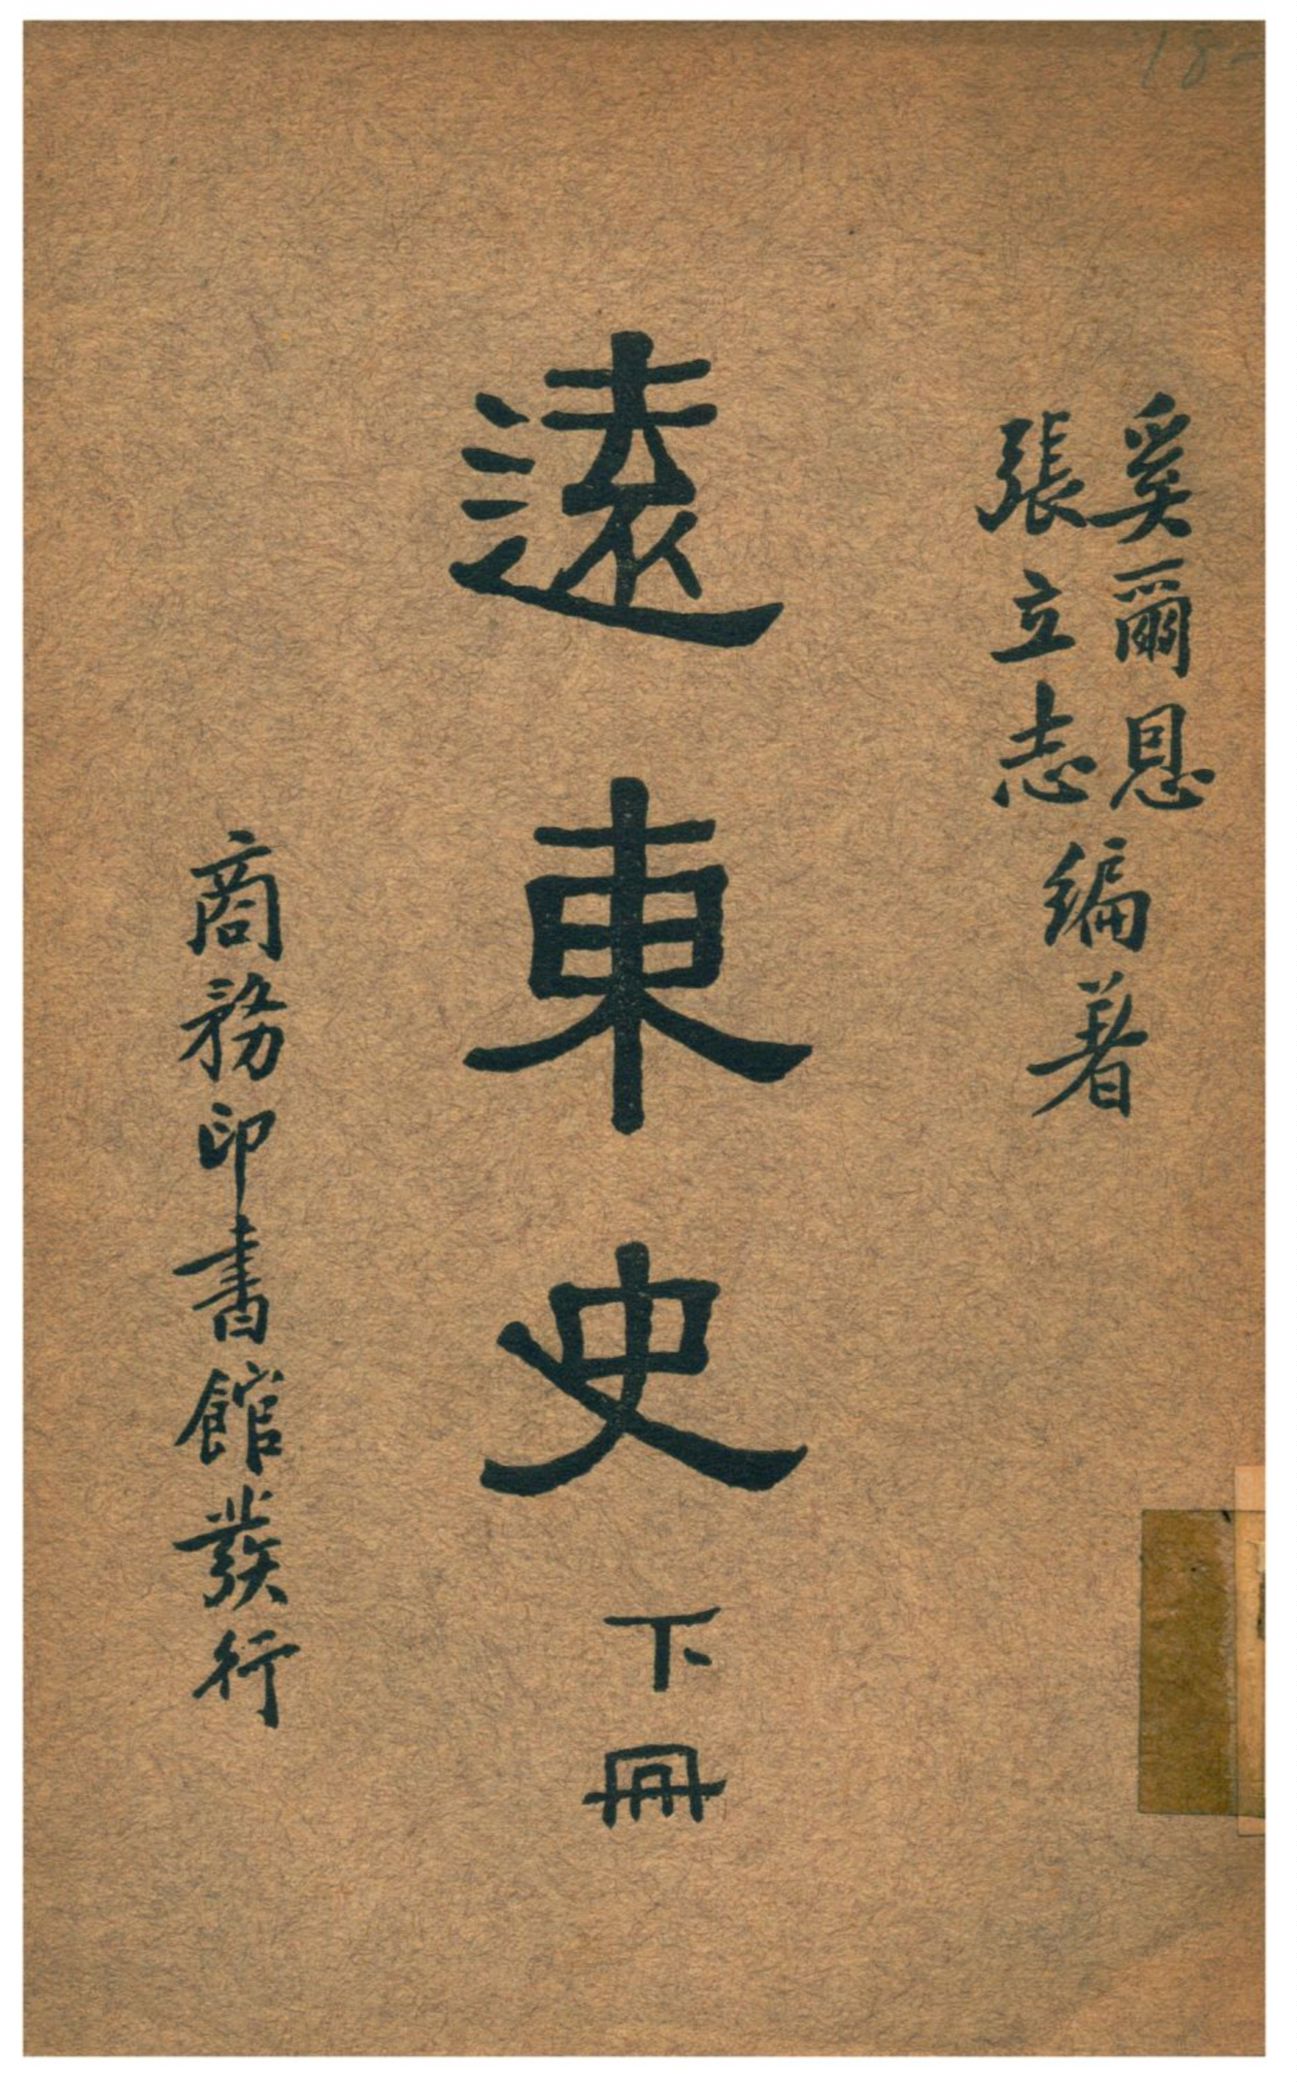 奚爾恩
張立志
編著
遠東史 下冊
商務印書館發行
18-